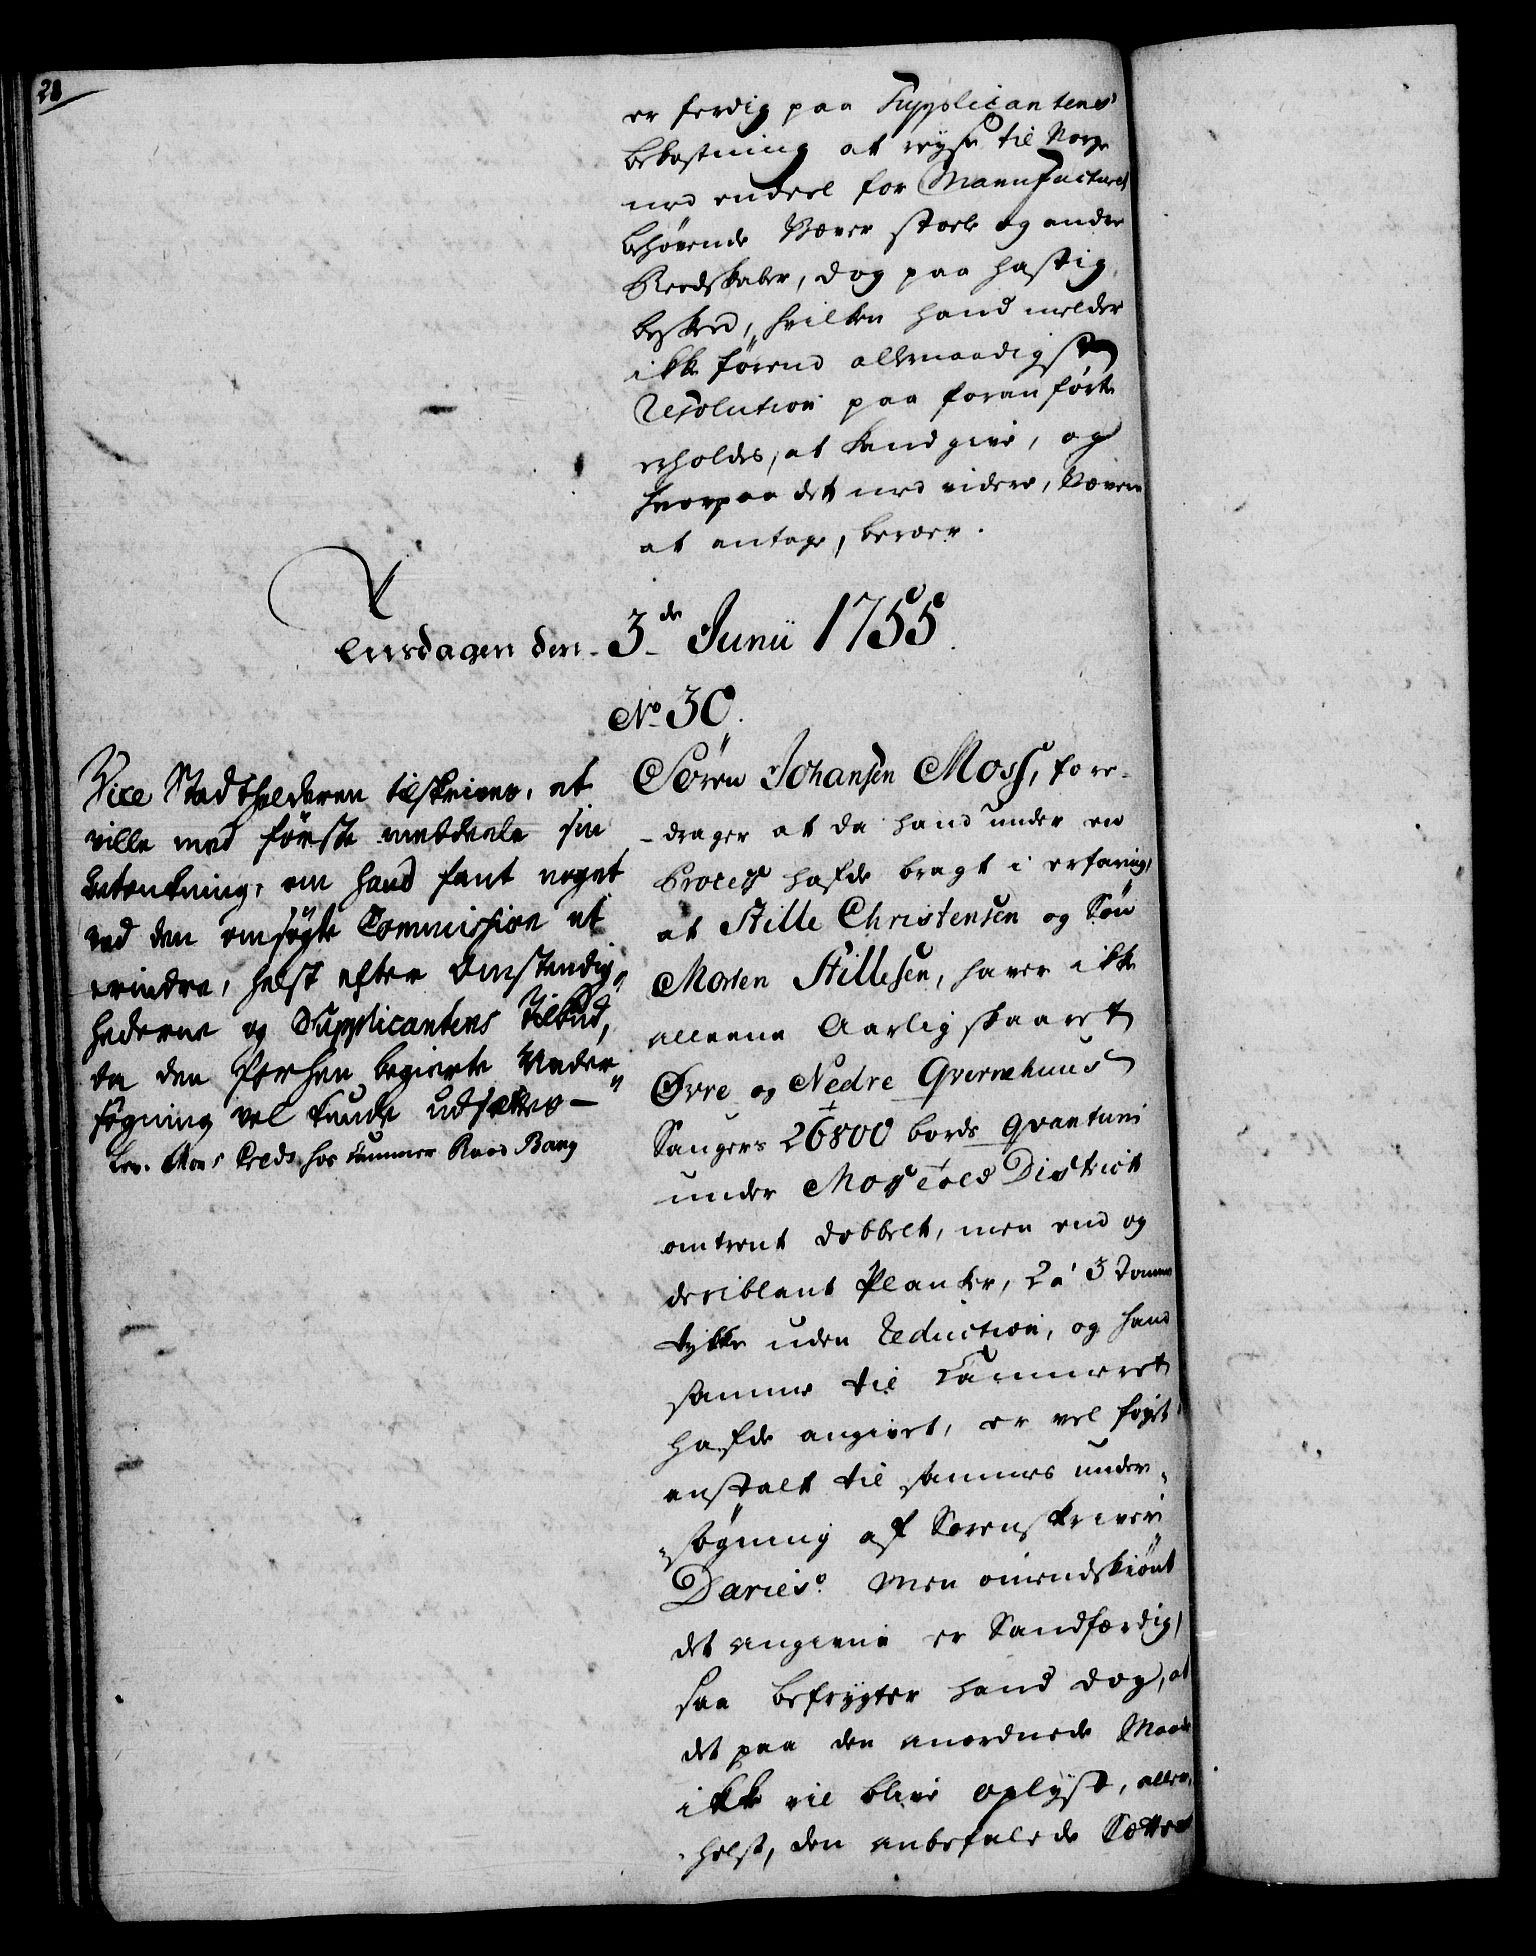 28
er ferdig paa Supplicantens
bekostning at reyse til Norge
med endeel for Manufacturet
behøvende Væver stoele og andre
Reedskaber, dog paa hastig
beskeed, hvilken hand melder
ikke førend allernaadigst
Resolution paa foranførte
erholdes, at kand give, og
hvorpaa det med videre, Væveren
at antage, beroer.
Tiirsdagen den 3de Junii 1755.
No 30.
Vice Stadtholderen tilskrives, at
ville med første meddeele sin
betænkning, om hand fant noget
ved den omsøgte Commission at
erindre, helst efter Omstændig„
hederne og Supplicantens Tilbud,
da den forhen begierte Under„
søgning vel kunde udsættes —
hos Kammer Raad Bang
Sören Johansen Moss, fore-
-drager at da hand under en
Process hafde bragt i erfaring,
at Stille Christensen og Søn
Morten Stillesen, haver ikke
alleene Aarlig skaaret
Øvre og Nedre Qvernehuus
Sauger 26800 bords Qvantum
under Moss Told District
omtrent dobbelt, men end og
deriblant Planker, 2 a 3 Tommer
tykke uden Reduction, og hand
samme til Kammeret
hafde angivet, er vel føyet
anstalt til sammes under„
„søgning af Sorenskriver
Daries. Men omendskiønt
det angivne er Sandfærdig,
saa befrygter hand dog, at
det paa den anordnede Maade
ikke vil blive oplyst, aller„
„helst, den anbefalede Sætter